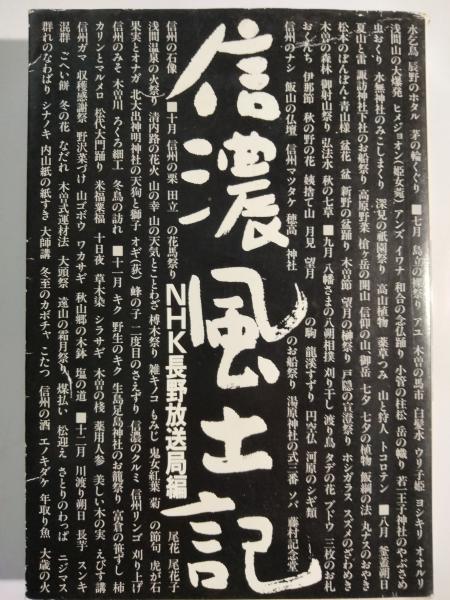 水乞鳥 辰野のホタル 茅の輪くぐり ■七月 島立の裸祭り アユ 木曽の馬市 白髪水 ウリ子姫 ヨシキリ オオルリ
浅間山の大爆発 ヒメジョオン(姫女菀) アンズ イワナ 和合の念仏踊り 小菅の柱松 岳の幟り 若一王子神社のやぶさめ
虫おくり 水無神社のみこしまくり 深見の祇園祭り 高山植物 薬草つみ 山と狩人 トコロテン ■八月 釜蓋朔日
夏山と雷 諏訪神社下社のお船祭り 高原野菜 槍ヶ岳の開山 信仰の山御岳 七夕 七夕の植物 飯綱の法 丸ナスのおやき
松本のぼんぼん・青山様 盆花 盆 新野の盆踊り 木曽節 望月の榊祭り 戸隠の宣澄祭り ホシガラス スズメのざわめき
木曽の森林 御射山祭り 弘法水 秋の七草 ■九月 八幡さまの八朔相撲 刈り干し 渡り鳥 タデの花 ブドウ 三枚のお札
おくんち 伊那節 秋の野の花 姨捨て山 月見 望月 の駒 龍渓すずり 円空仏 河原のシギ類
信州のナシ 飯山の仏壇 信州マツタケ 穂高 神社 のお船祭り 湯原神社の式三番 ソバ 藤村記念堂
信濃風土記
NHK長野放送局編
信州の石像 ■十月 信州の栗 田立 の花馬祭り 尾花 尾花子
浅間温泉の火祭り 清内路の花火 山の幸 山の天気とことわざ 榑木祭り 雑キノコ もみじ 鬼女紅葉 菊 の節句 虎が石
果実とオナガ 北大出神明神社の天狗と獅子 オギ(荻) 蜂の子 二度目のさえずり 信濃のクルミ 信州リンゴ 刈り上げ
信州のみそ 木曽川 ろくろ細工 冬鳥の訪れ ■十一月 キク 野生のキク 生島足島神社のお籠祭り 富倉の笹ずし 柿
カリンとマルメロ 松代大門踊り 米福粟福 十日夜 草木染 シラサギ 木曽の桟 薬用人参 美しい木の実 えびす講
信州ガマ 収穫感謝祭 野沢菜づけ 山ゴボウ ワカサギ 秋山郷の木鉢 塩の道 ■十二月 川渡り朔日 長芋 スンキ
混群 こぐい餅 冬の花 なだれ 木曽式運材法 大頭祭 遠山の霜月祭り 煤払い 松迎え さとりのわっぱ ニジマス
群れのなわばり シナノキ 内山紙の紙すき 大師講 冬至のカボチャ こたつ 信州の酒 エノキダケ 年取り魚 大歳の火